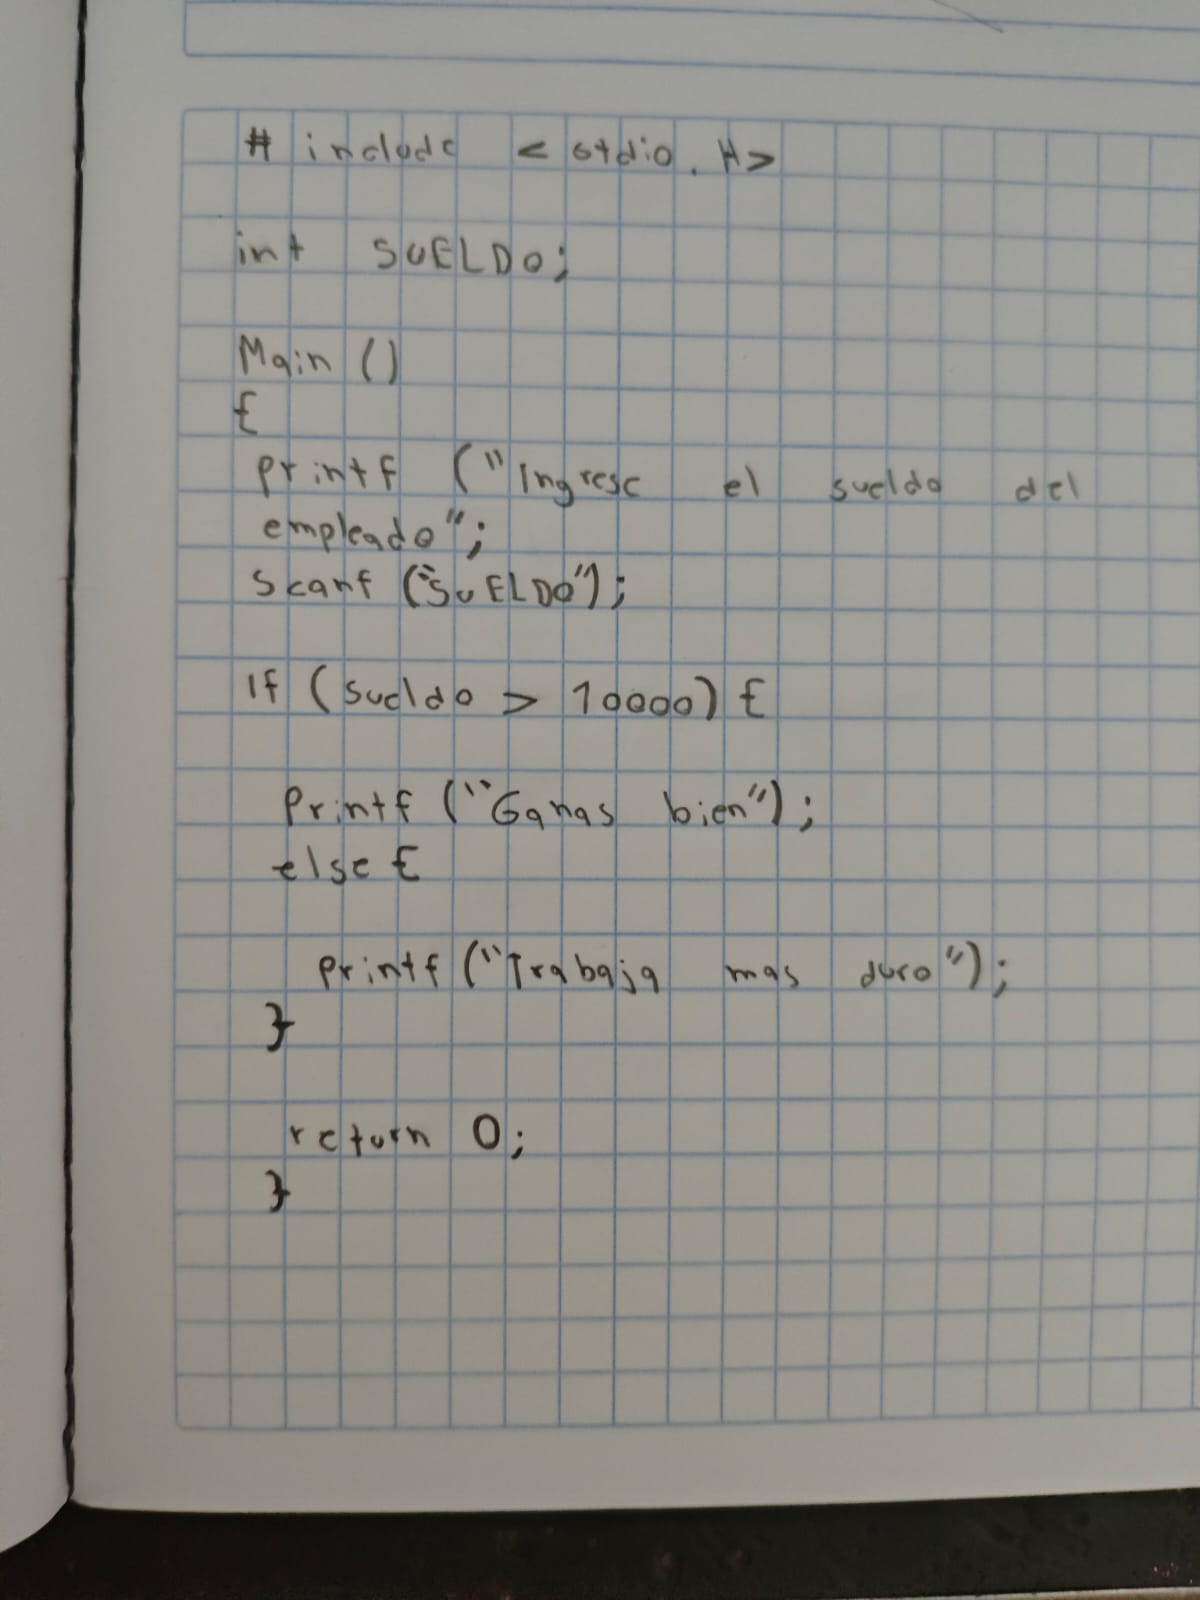 # include < stdio. H>
int SUELDO;
Main ()
{
printf ("Ingrese el sueldo del
empleado";
Scanf ("SUELDO");
If (sueldo > 10000) {
Printf ("Ganas bien");
else {
printf ("Trabaja mas duro");
}
return 0;
}